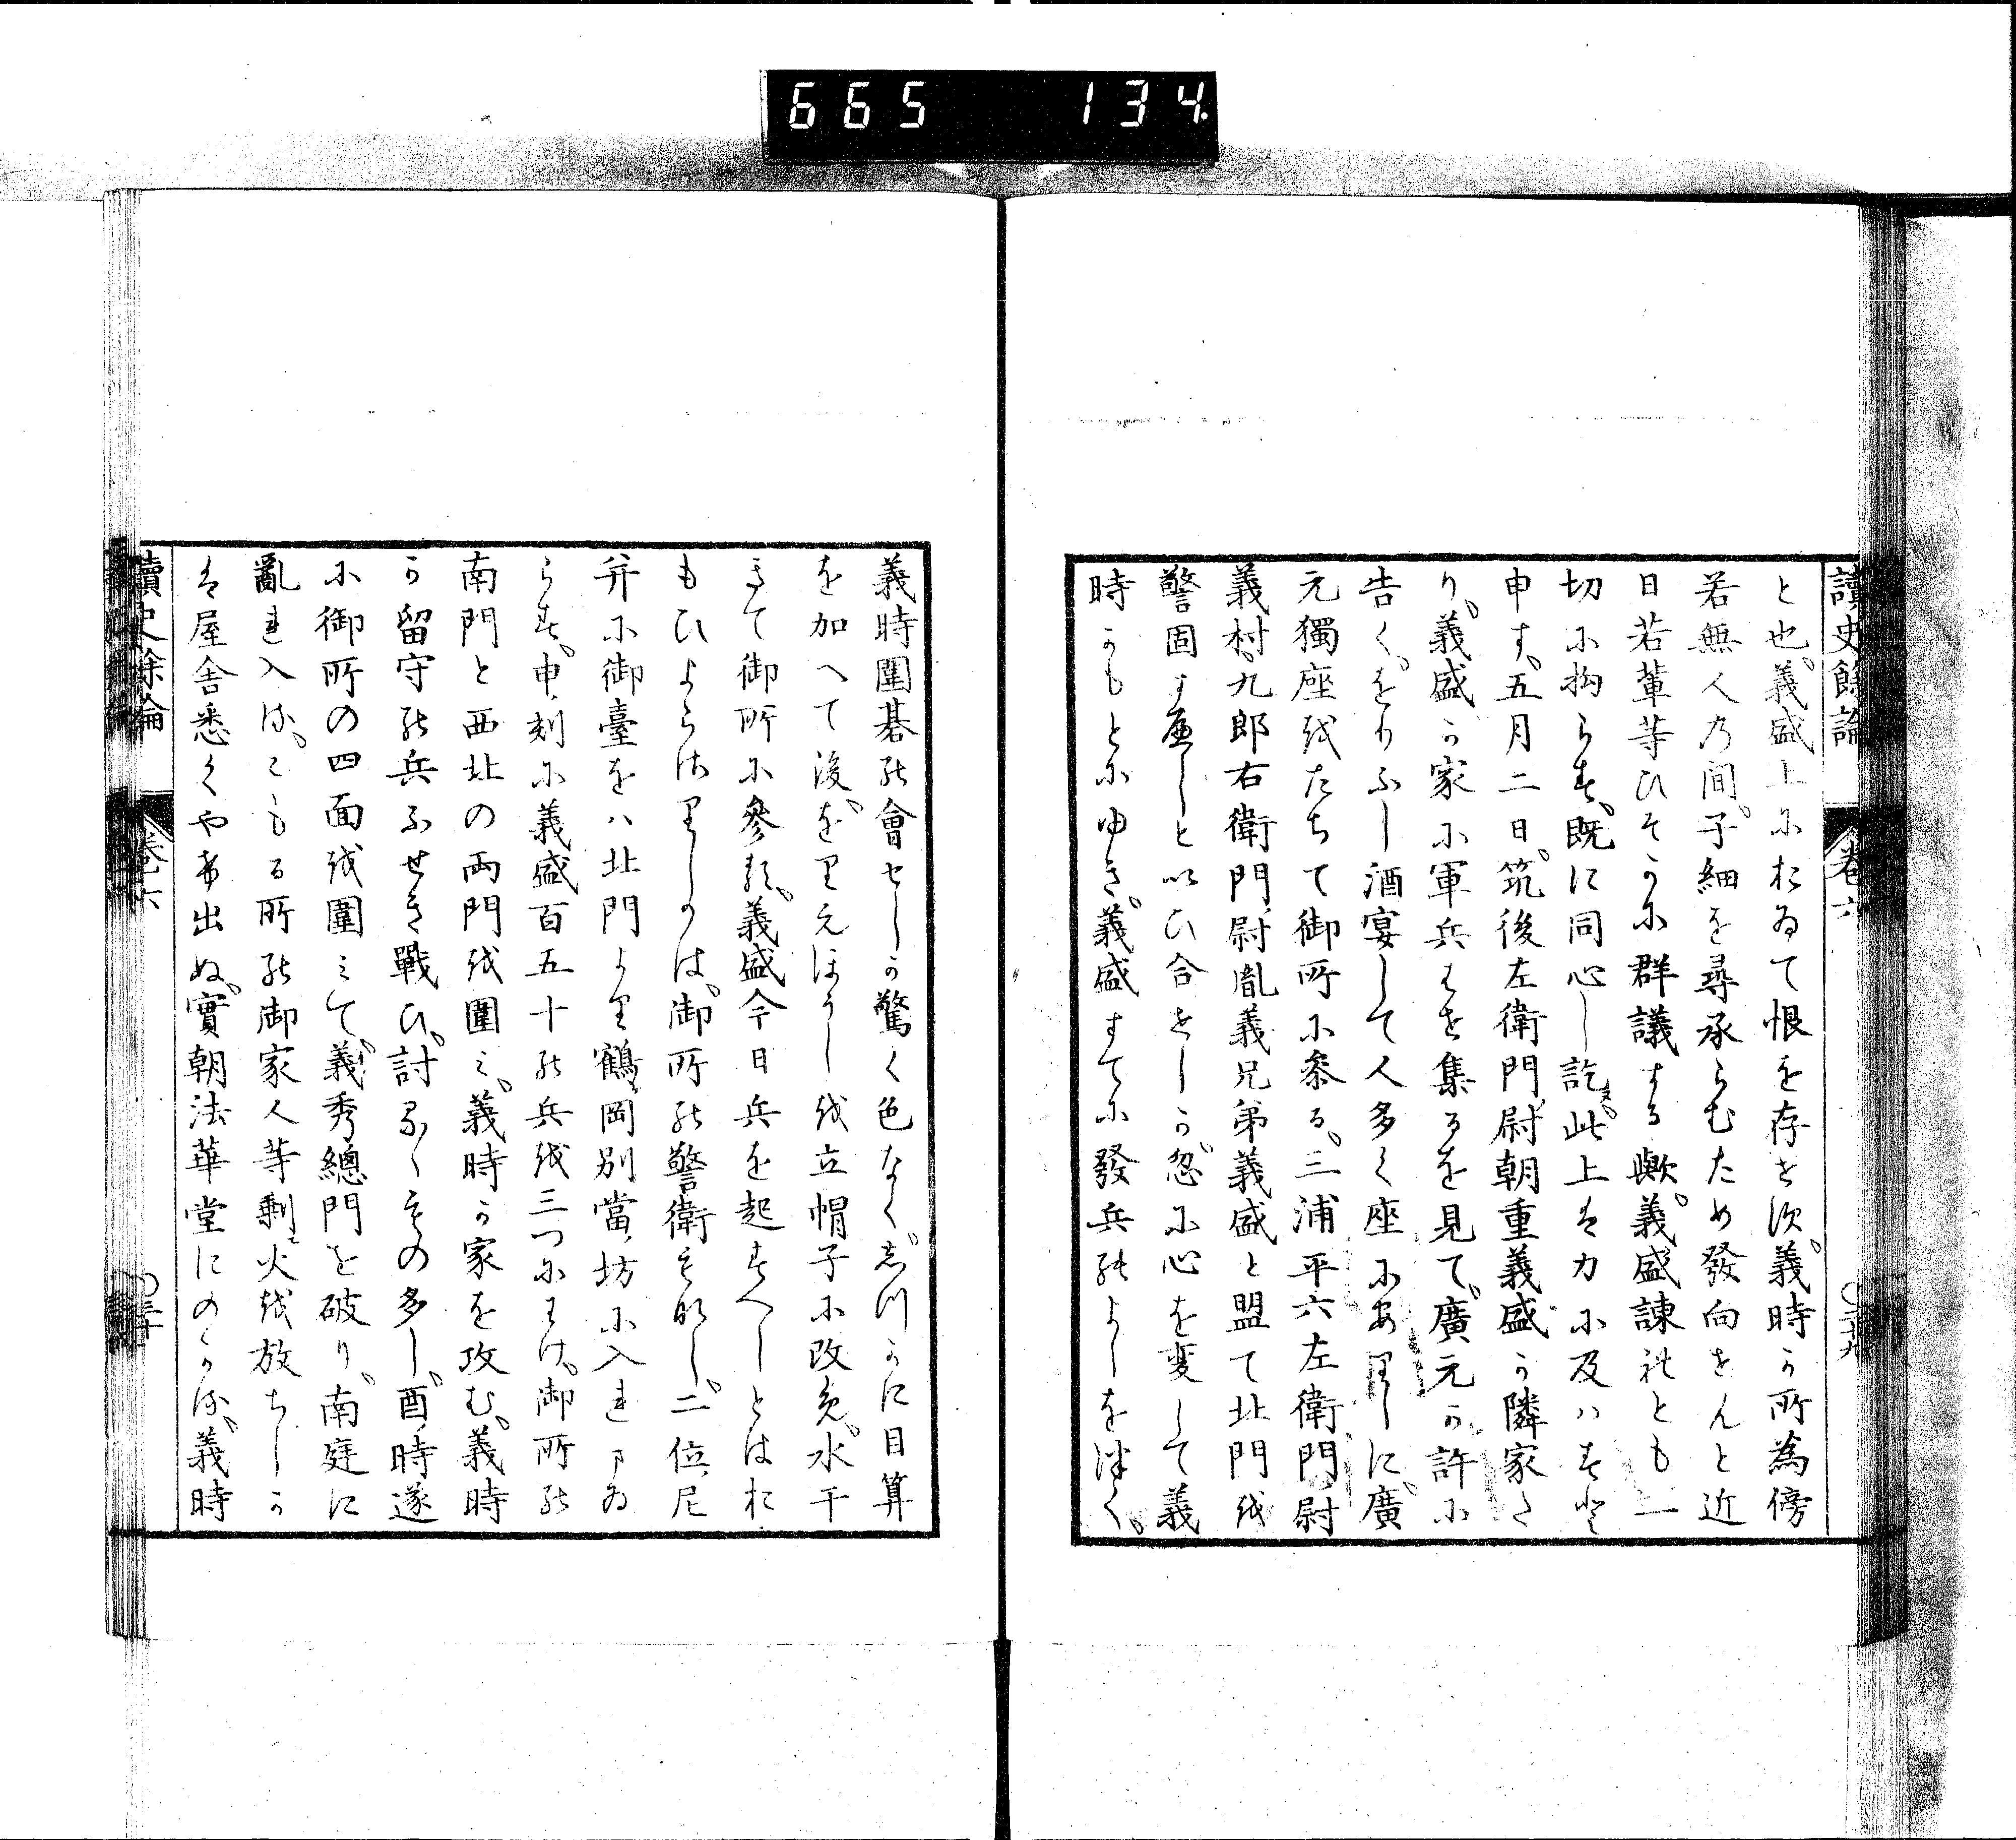 665 134
讀史餘論 卷六 〇二十九
と也、義盛上におゐて恨を存せず、義時か所為傍
若無人乃間、子細を尋承らむため發向せんと近
日若輩等ひそかに群議する歟、義盛諫れとも一
切に拘らず、既に同心し訖ぬ、此上は力に及ハずと
申す、五月二日、筑後左衛門尉朝重義盛か隣家た
り、義盛か家に軍兵はせ集るを見て、廣元か許に
告く、をりふし酒宴して人多く座にありしに、廣
元獨座をたちて御所に参る、三浦平六左衛門尉
義村、九郎右衛門尉胤義兄弟義盛と盟て北門を
警固すへしといひ合せしか、忽に心を変して義
時かもとにゆき、義盛すてに發兵のよしを津く、
義時圍碁の會せしか驚く色なく、しつかに目算
を加へて後、をりえほうしを立帽子に改め、水干
きて御所に參る、義盛今日兵を起すへしとはお
もひよらさりしかは、御所の警衛もなし、二位尼
并に御臺をハ北門より鶴岡別當坊に入れまゐ
らす、申刻に義盛百五十の兵を三つにわけ、御所の
南門と西北の両門を圍ミ、義時か家を攻む、義時
か留守の兵ふせき戰ひ、討るゝもの多し、酉時遂
に御所の四面を圍ミて、義秀總門を破り、南庭に
亂れ入る、こもる所の御家人等剰火を放ちしか
は屋舎悉くやけ出ぬ、實朝法華堂にのかる、義時
讀史餘論 卷六 〇三十